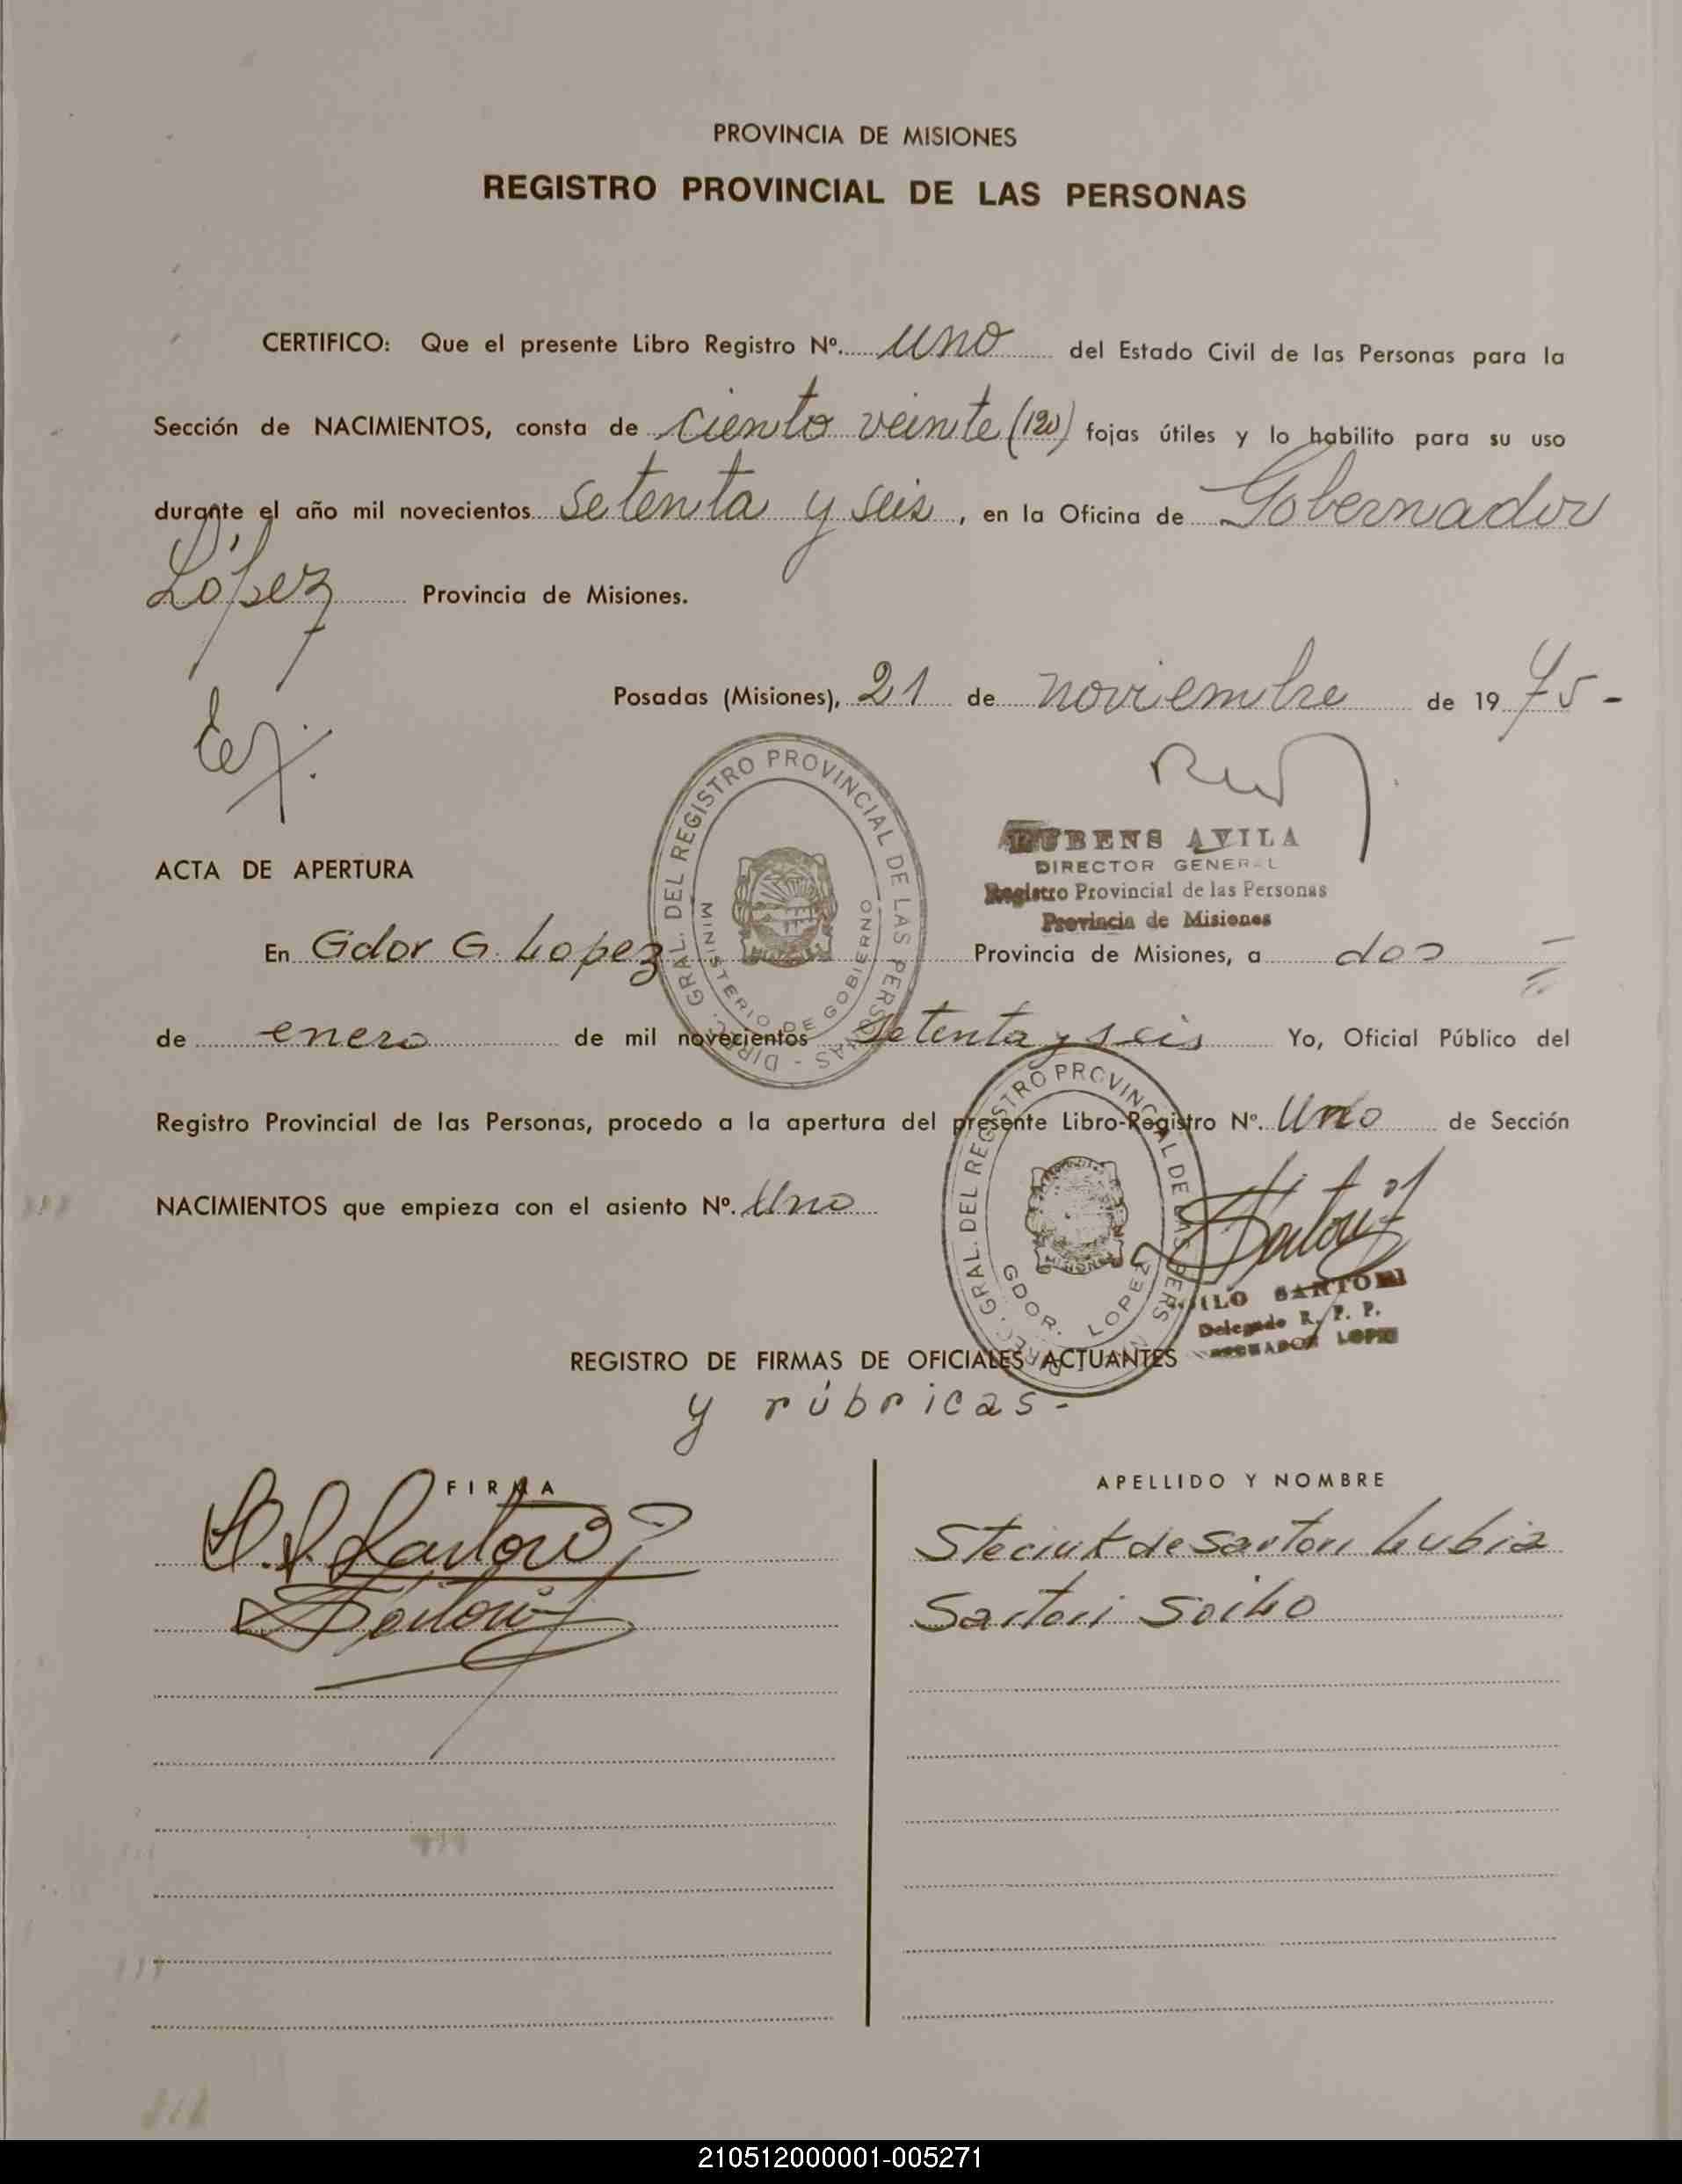 PROVINCIA DE MISIONES
REGISTRO PROVINCIAL DE LAS PERSONAS
CERTIFICO: Que el presente Libro Registro Nº. uno del Estado Civil de las Personas para la
Sección de NACIMIENTOS, consta de ciento veinte (120) fojas útiles y lo habilito para su uso
durante el año mil novecientos setenta y seis, en la Oficina de Gobernador
López Provincia de Misiones.
Posadas (Misiones), 21 de noviembre de 1975-
DIREC. GRAL. DEL REGISTRO PROVINCIAL DE LAS PERSONAS -
MINISTERIO DE GOBIERNO
RUBENS AVILA
DIRECTOR GENERAL
Registro Provincial de las Personas
Provincia de Misiones
ACTA DE APERTURA
En Gdor G. Lopez Provincia de Misiones, a dos
de enero de mil novecientos setenta y seis Yo, Oficial Público del
Registro Provincial de las Personas, procedo a la apertura del presente Libro-Registro Nº. Uno de Sección
NACIMIENTOS que empieza con el asiento Nº. Uno
DIREC. GRAL. DEL REGISTRO PROVINCIAL DE LAS PERS
GDOR. LOPEZ
SARTORI
Delegado R. P. P.
LOPEZ
REGISTRO DE FIRMAS DE OFICIALES ACTUANTES
y rúbricas-
FIRMA
APELLIDO Y NOMBRE
Steciuk de Sartori Lubia
Sartori Soilo
210512000001-005271